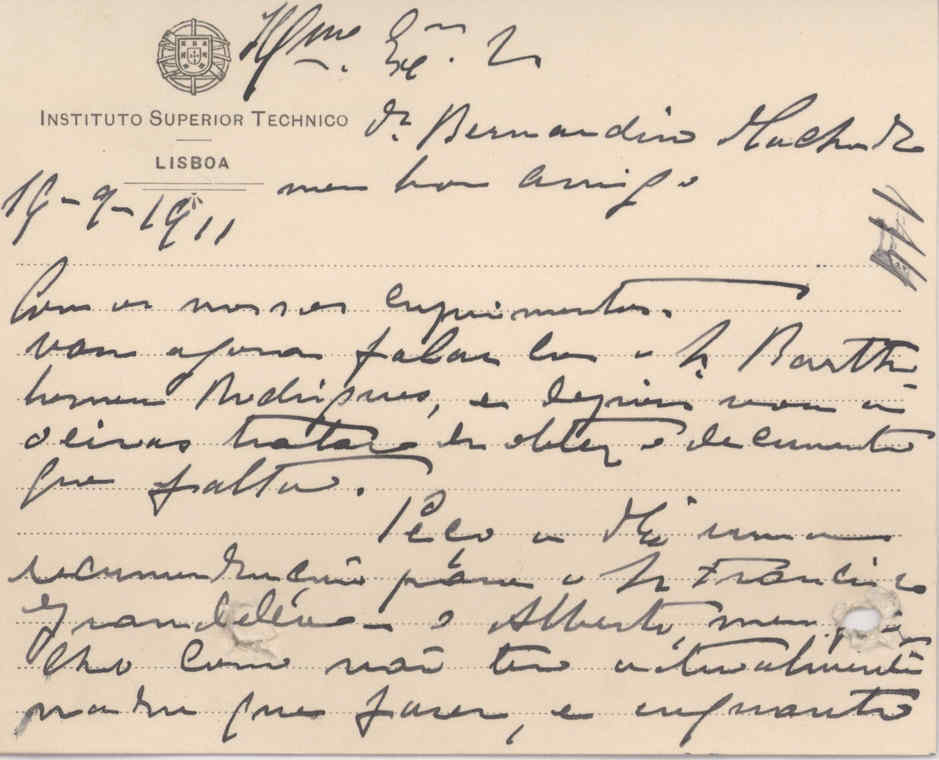 Illmo. Exmo. Sr.
INSTITUTO SUPERIOR TECHNICO
Dr. Bernardino Machado
LISBOA
meu bom amigo
19-9-1911
Com os nossos cumprimentos.
Vou agora falar com o Sr. Barth
lomeu Rodrigues, e depois vou a
Oeiras tratar de obter o documento
que falta.
Peço a uma
recomendação para o Sr Francisco
Grandella o Alberto, meu
lho como não tem actualmente
nada que fazer, e enquanto